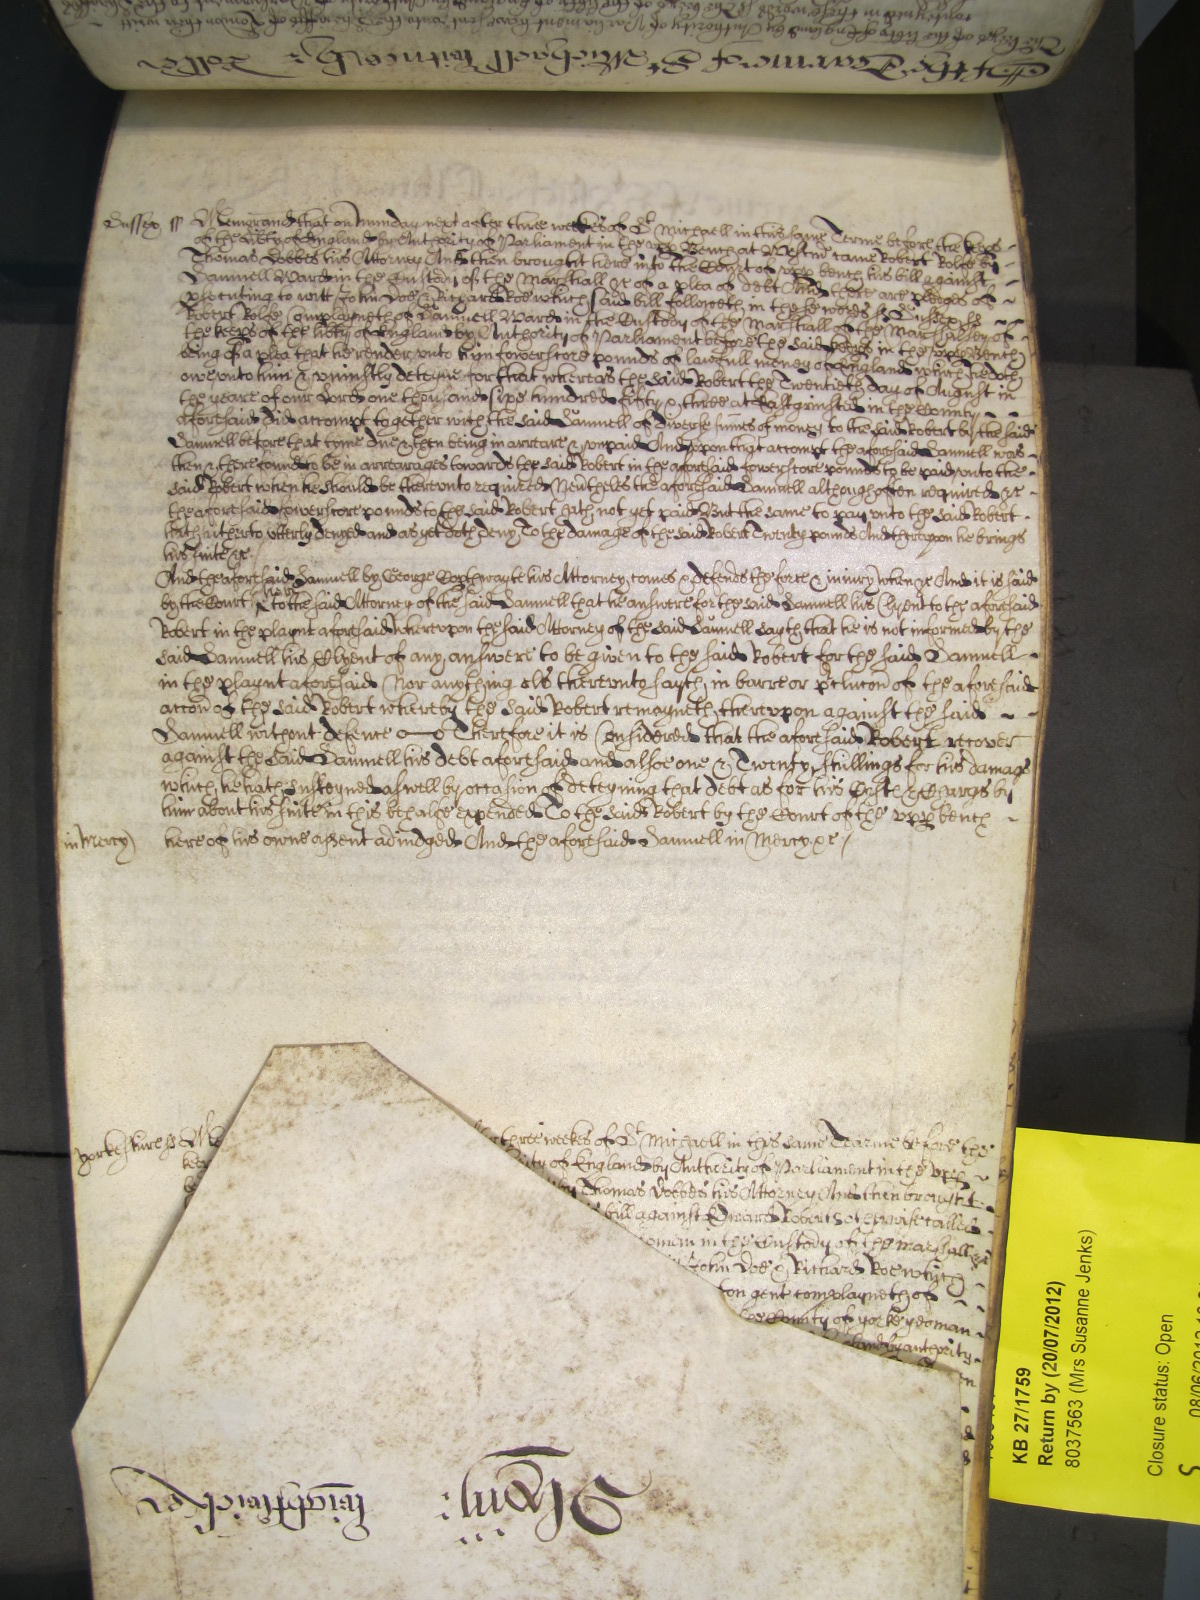 of the Tearme of St Michaell witnes by Rolle
Sussex ss Memorand that on Munday next after three weekes of St Michaell in this same Terme before the keeps
of the lib'ty of England by Authority of Parliament in the vpp Bench at Westm' came Robert Rolfe by
Thomas Dobbes his Attorney And then brought here into the Court of vpp bench his bill against
Samuell Ward in the Custody of the Marshall &c of a plea of debt And there are pledges of
p'secuting to witt John Doe & Richard Roe which said bill followeth in these words ss Sussex ss
Robert Rolfe Complayneth of Samuell Ward in the Custody of the Marshall of the Marshalsey of
the keeps of the lib'ty of England by Authority of Parliament before the said keeps in the vpp Bench
being of a plea that he render vnto him fowerscore pounds of lawfull money of England which he doth
owe vnto him & vniustly deteyne for that whereas the said Robert the Twentieth day of August in
the yeare of our Lord one thousand sixe hundred fifty & three at Eastgrinsted in the County
aforesaid did accompt together with the said Samuell of diverse sumes of money to the said Robert by the said
Samuell before that tyme due & then being in arreare & vnpaid And vpon that accompt the aforesaid Samuell was
then & there found to be in arrearages towards the said Robert in the aforesaid fowerscore pounds to be paid vnto the
said Robert when he should be therevnto required Neu'theles the aforesaid Samuell although often required &c
the aforesaid fowerscore pounds to the said Robert hath not yet paid But the same to pay vnto the said Robert
hath hitherto vtterly denyed and as yet doth deny To the damage of the said Robert Twenty pounds And therevpon he brings
his suite &c
And the aforesaid Samuell by George his Attorney comes & defends the force & iniury when &c And it is said
by the Court here to the said Attorney of the said Samuell that he answere for the said Samuell his Clyent to the aforesaid
Robert in the playnt aforesaid wherevpon the said Attorney of the said Samuell sayth that he is not informed by the
said Samuell his Clyent of any answere to be given to the said Robert for the said Samuell
in the playnt aforesaid Nor anything els therevnto sayth in barre or p'clucon of the aforesaid
accon of the said Robert whereby the said Robert remayneth therevpon against the said
Samuell without defence Therefore it is Considered that the aforesaid Robert recover
against the said Samuell his debt aforesaid and alsoe one & Twenty shillings for his damage
which he hath susteyned aswell by occasion of deteyning that debt as for his Custs & Chargs by
him about his suite in this behalfe expended To the said Robert by the Court of the vpp bench
in Mercy here of his owne assent adiudged And the aforesaid Samuell in Mercy &c
Yorkeshire ss Me three weekes of St Michaell in this same Tearme before the
kee of England by Authority of Parliament in the vpp
by Thomas Dobbes his Attorney And then brought
bill against Edward Roberts otherwise called
in the Custody of the Marshall &c
John Doe & Richard Roe which
gent complayneth of
County of yorke yeoman
by authority
KB 27/1759
Return by (20/07/2012)
8037563 (Mrs Susanne Jenks)
Closure status: Open